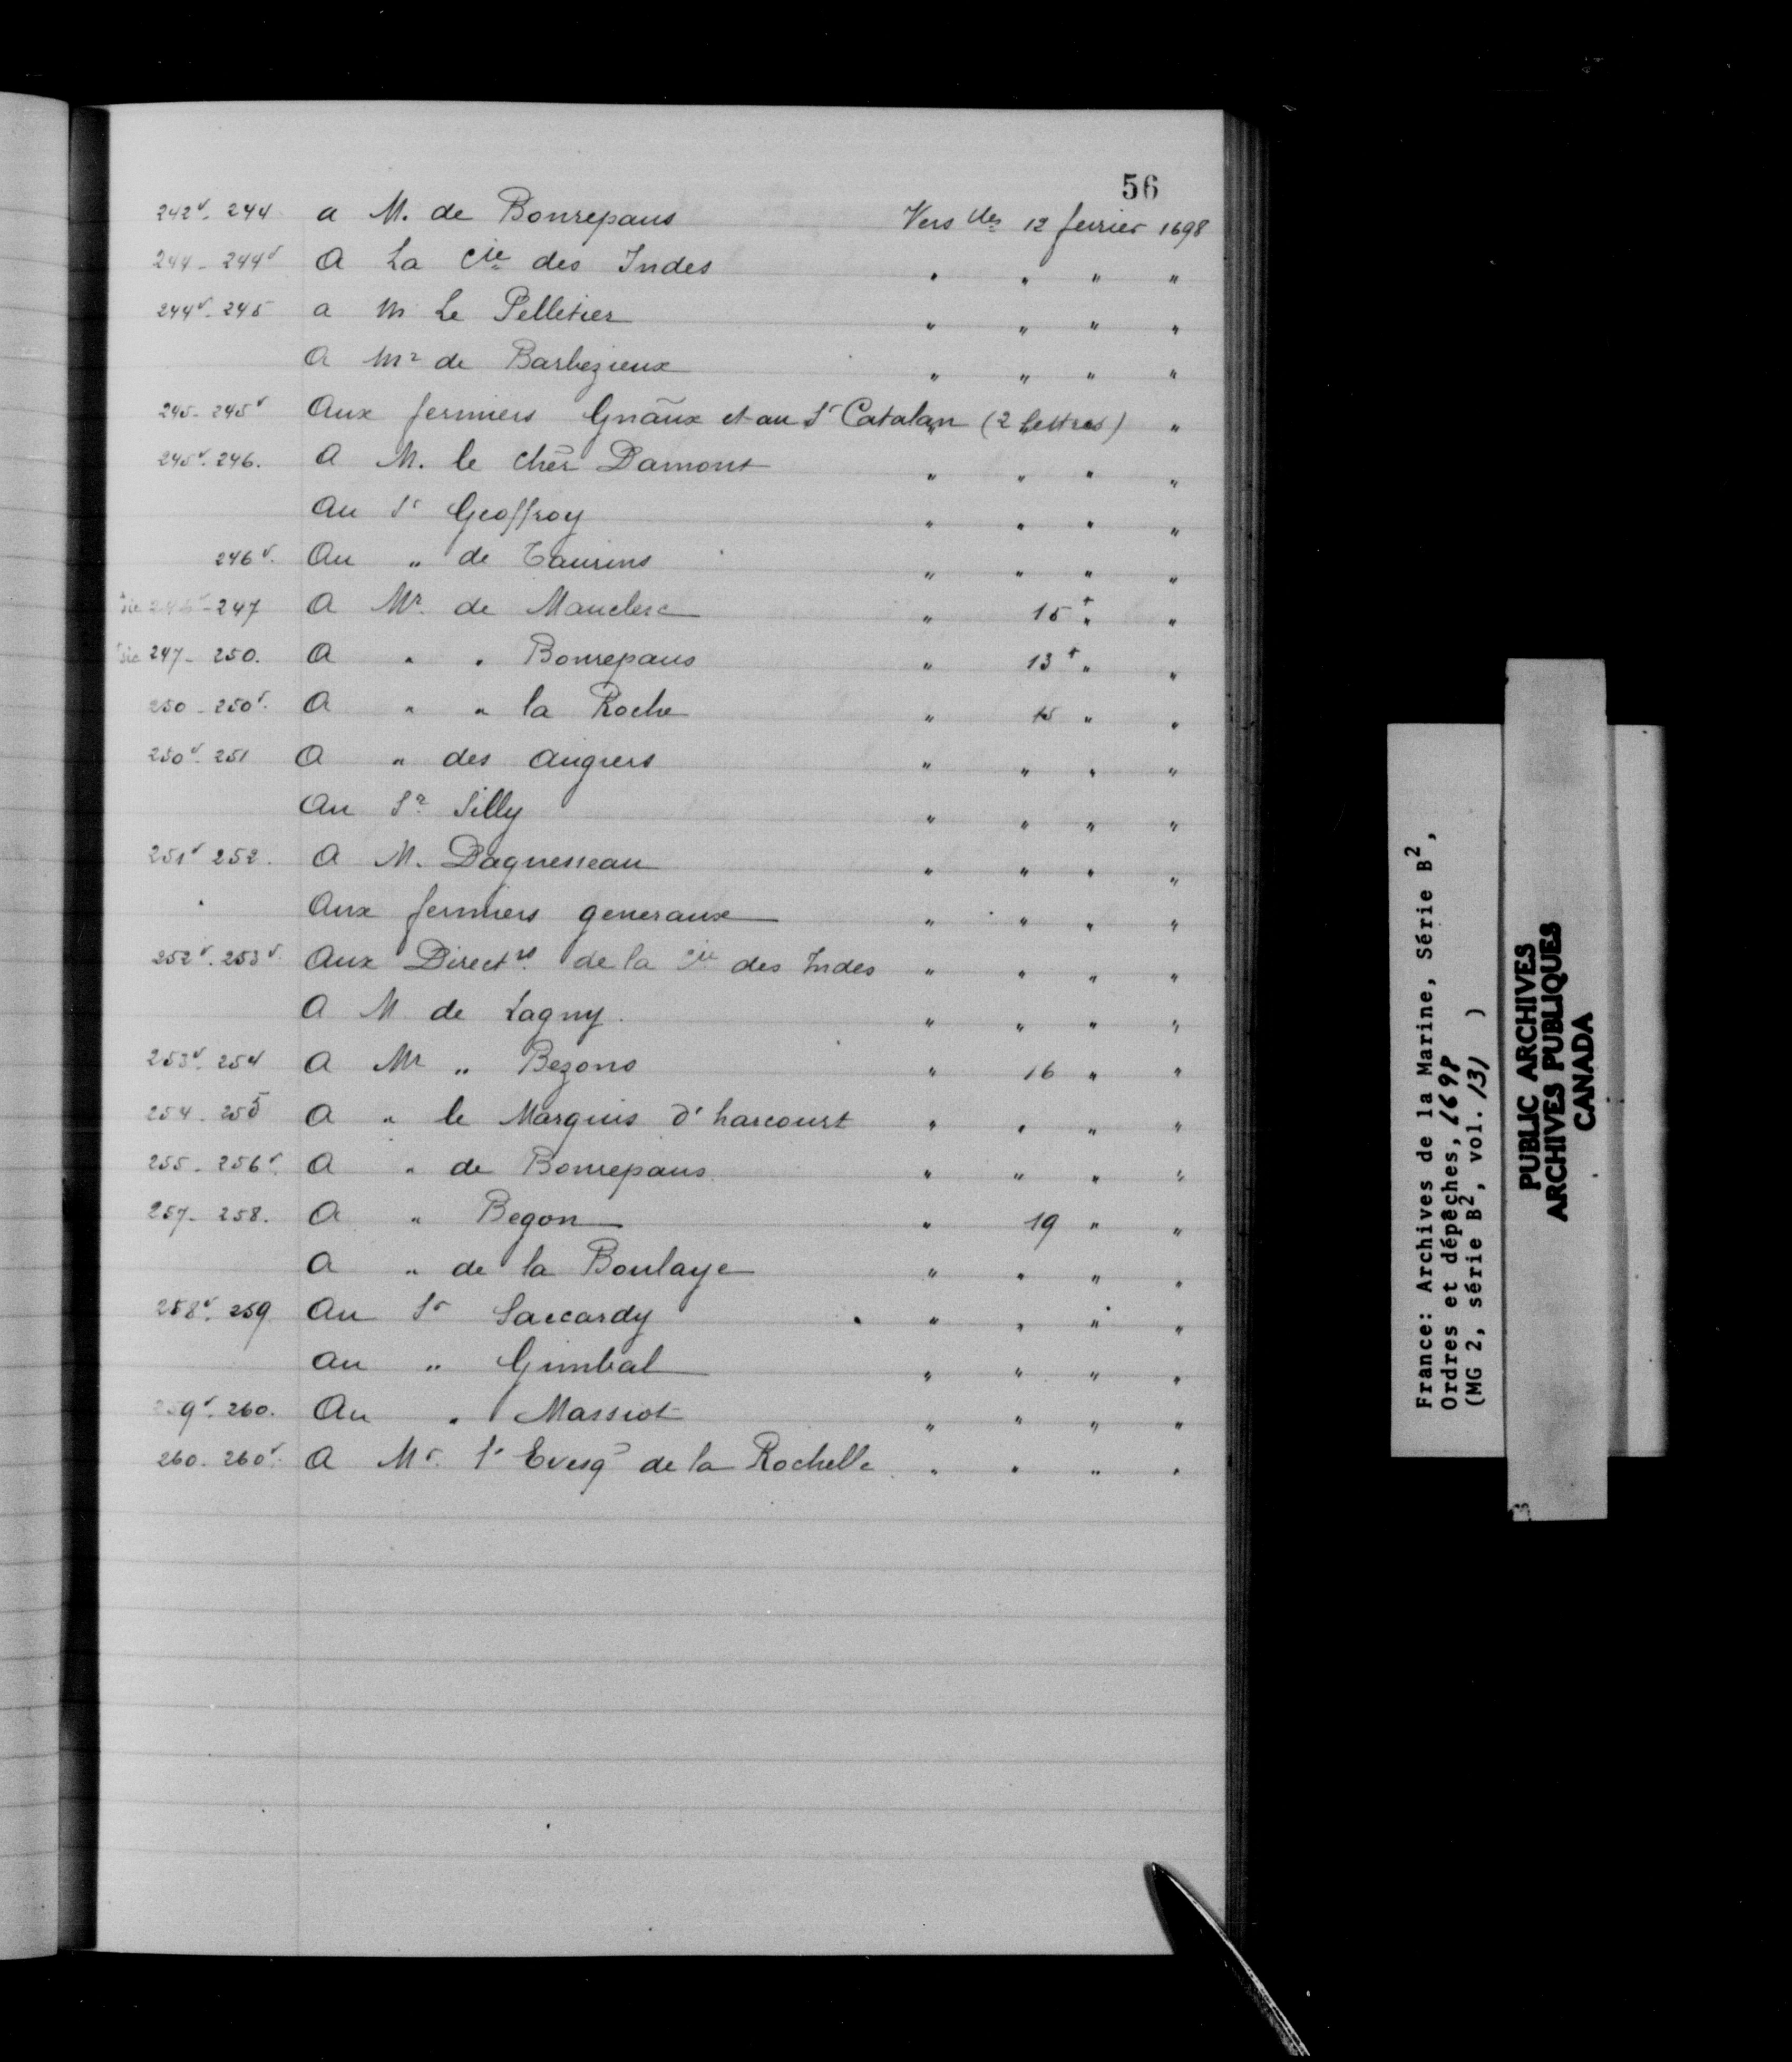 56
242v. 244 a M. de Bonrepaus Vers lles 12 fevrier 1698
244 - 244v A La Cie des Indes " " " "
244v. 245 a M Le Pelletier " " " "
A Mr de Barbezieux " " " "
245 - 245v Aux fermiers Gnãux et au Sr Catalan (2 lettres) "
245v. 246. A M. le Chẽr Damont " " " "
Au Sr Geoffroy " " " "
246v. Au " de Taurins " " " "
sic 246v - 247 A Mr. de Mauclerc " 15 + " "
sic 247 - 250. A " " Bonrepaus " 13 + " "
250 - 250v. A " " la Roche " 15 " "
250v. 251 A " des Augiers " " " "
Au Sr Silly " " " "
251v 252. A M. Daguesseau " " " "
Aux fermiers generaux " " " "
252v. 253v. Aux Directrs. de la Cie des Indes " " " "
A M de Lagny. " " " "
253v. 254 A Mr " Bezons " 16 " "
254 - 255 A " le Marquis d'harcourt " " " "
255 - 256v. A " de Bonrepaus. " " " "
257 - 258. A " Begon " 19 " "
A " de la Boulaye " " " "
258v. 259 Au Sr Saccardy " " " "
au " Gimbal " " " "
259v. 260. Au " Massiot " " " "
260. 260v. A Mr. l'Evesq de la Rochelle " " " "
France: Archives de la Marine, Série B2,
Ordres et dépêches, 1698
(MG 2, série B2, vol. 131 )
PUBLIC ARCHIVES
ARCHIVES PUBLIQUES
CANADA